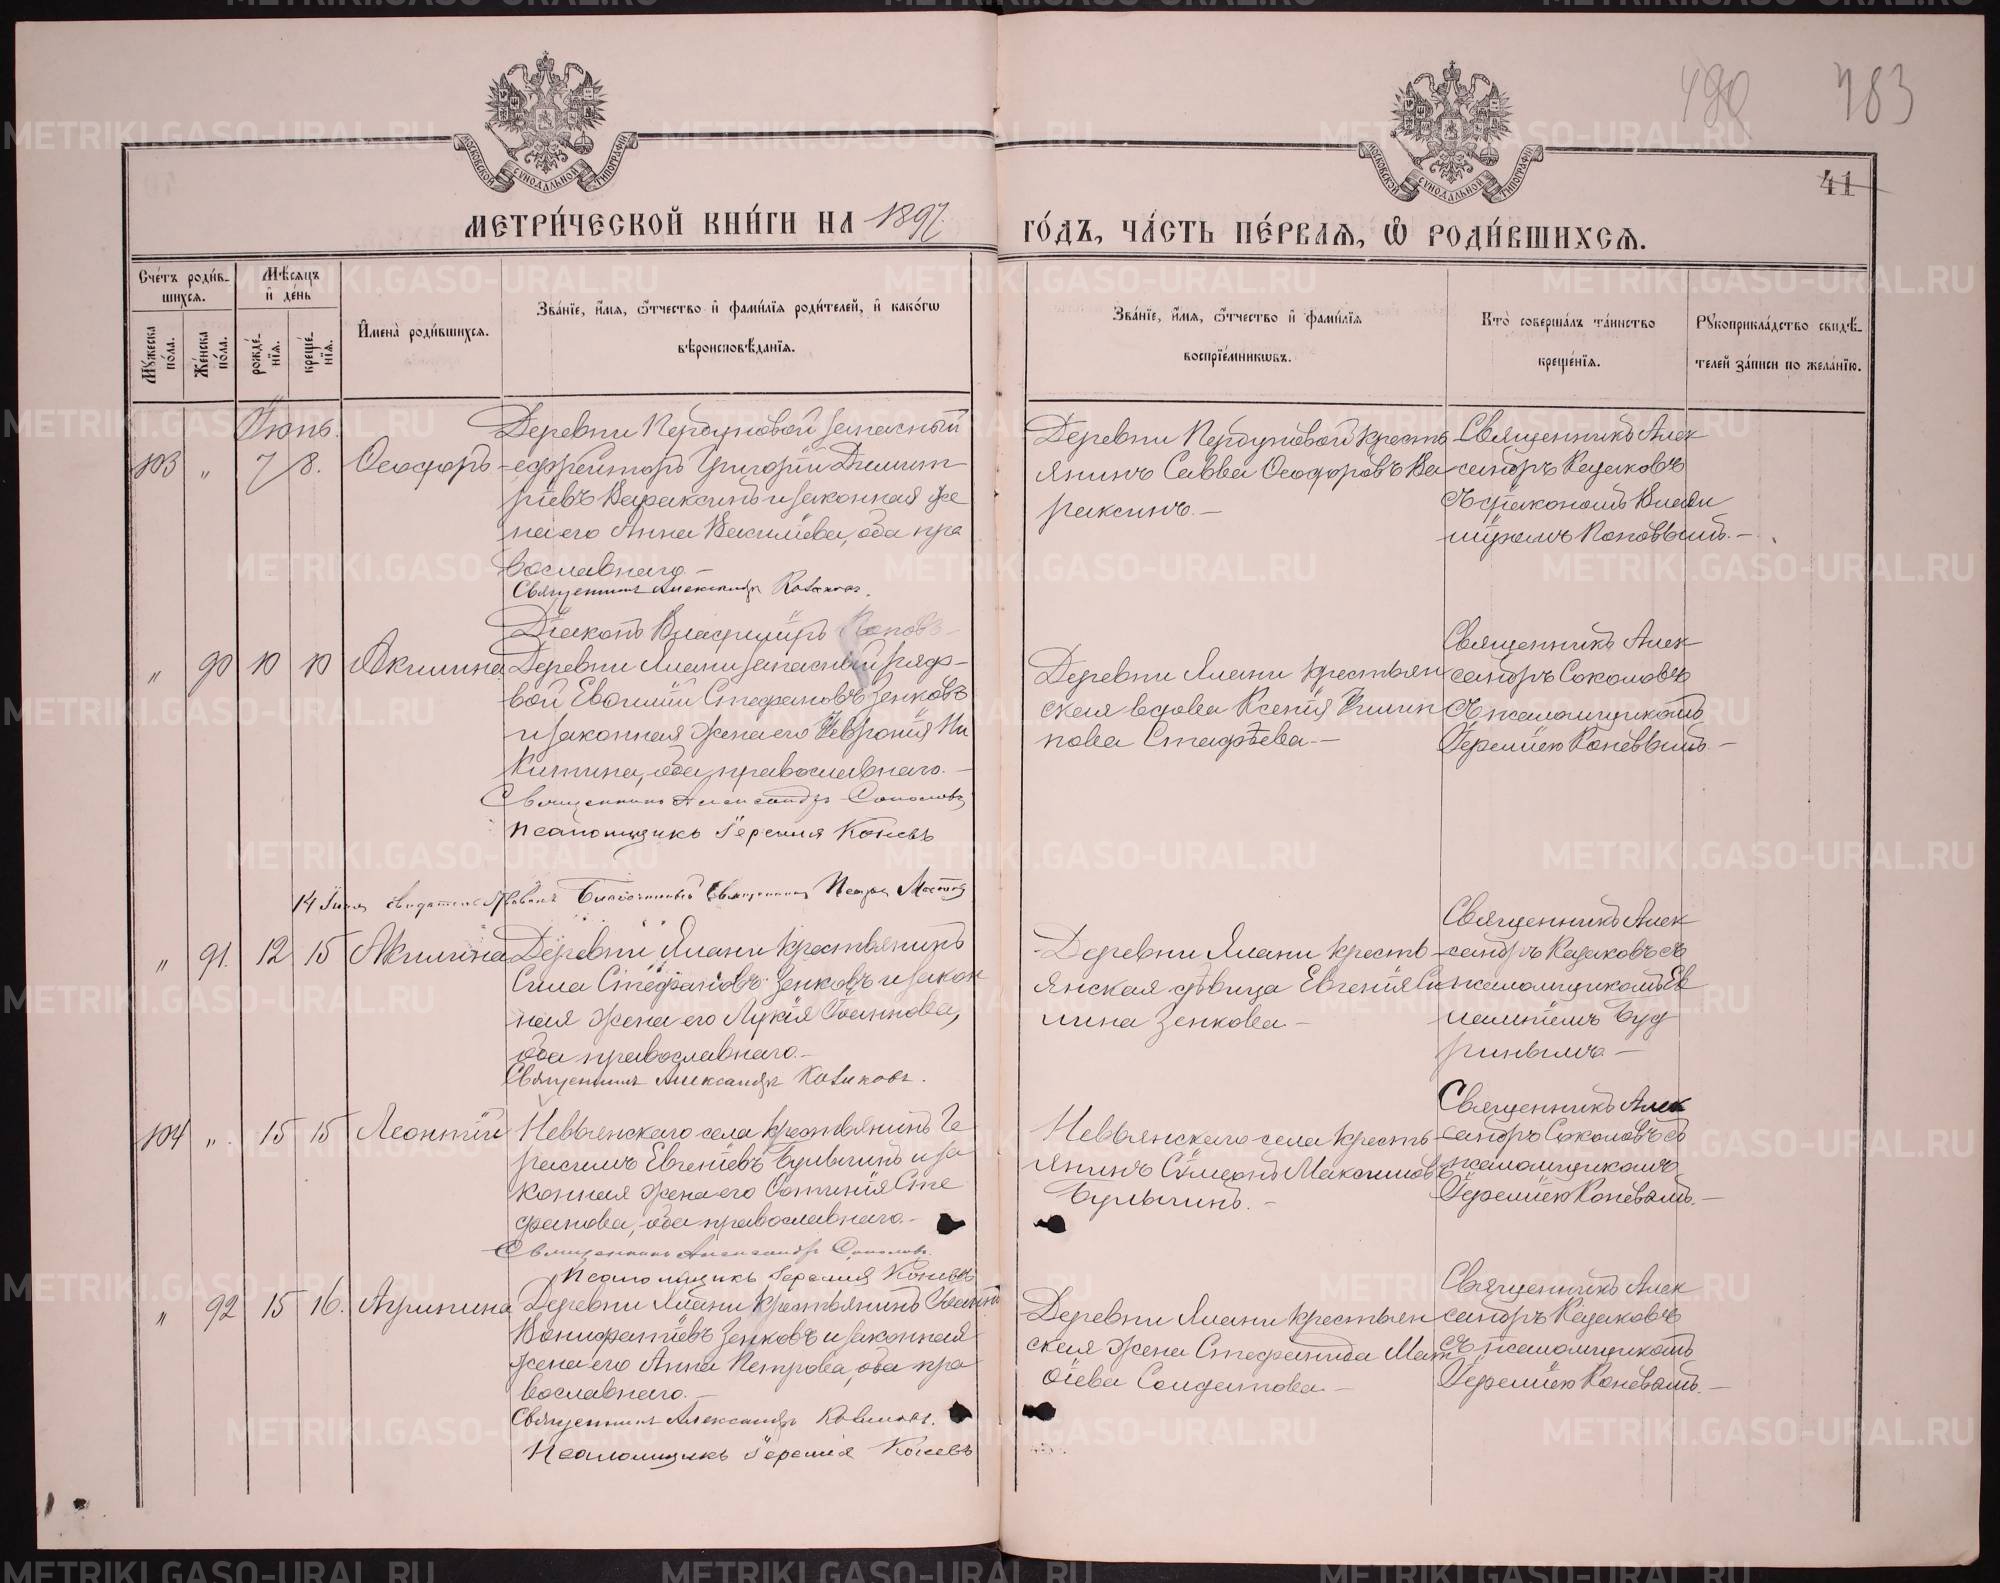 490 783
41
МОСКОВСКОЙ СУНОДАЛЬНОЙ ТИПОГРАФІИ
МОСКОВСКОЙ СУНОДАЛЬНОЙ ТИПОГРАФІИ
МЕТРИ́ЧЕСКОЙ КНИ́ГИ НА 1897
ГО́ДЪ, ЧА́СТЬ ПЕ́РВАЯ, Ѽ РОДИ́ВШИХСЯ.
Сче́тъ роди́вшихся.
Мꙋжеска по́ла.
Же́нска по́ла.
Мѣ́сяцъ и҆ де́нь
рожде́нїя.
креще́нїя.
И҆мена̀ роди́вшихся.
Зва́нїе, и҆́мя, ѻ҆́тчество и҆ фами́лїя роди́телей, и҆ како́гѡ
вѣроисповѣ́данїя.
Зва́нїе, и҆́мя, ѻ҆́тчество и҆ фами́лїя
воспрїе́мникѡвъ.
Кто̀ соверша́лъ та́инство
креще́нїя.
Рꙋкоприкла́дство свидѣ́-
телей за́писи по жела́нїю.
Іюнь.
103 „ 7 8. Ѳеодоръ
Деревни Пердуновой запасный
ефрейторъ Григорій Димит
ріевъ Вараксинъ и законная же
на его Анна Василіева, оба пра
вославнаго –
Священникъ Александръ Казаковъ.
Діаконъ Владиміръ Поповъ
Деревни Пердуновой кресть
янинъ Савва Ѳеодоровъ Ва
раксинъ. –
Священникъ Алек
сандръ Казаковъ
съ діакономъ Влади
міромъ Поповымъ. –
„ 90 10 10 Акилина
Деревни Ялани запасный рядо-
вой Евѳимій Стефановъ Зенковъ
и законная жена его Февронія Ни
китина, оба православнаго. –
Священникъ Александръ Соколовъ
Псаломщикъ Іеремія Коневъ
Деревни Ялани крестьян
ская вдова Ксенія Филип
пова Стафѣева –
Священникъ Алек
сандръ Соколовъ
съ псаломщикомъ
Іереміею Коневымъ. –
14 Іюня свидѣтельствовалъ Благочинный Священникъ Петръ
„ 91. 12 15 Акилина
Деревни Ялани крестьянинъ
Сила Стефановъ Зенковъ и закон
ная жена его Лукія Іоаннова,
оба православнаго. –
Священникъ Александръ Казаковъ.
Деревни Ялани кресть
янская дѣвица Евгенія Си
лина Зенкова –
Священникъ Алек
сандръ Казаковъ съ
псаломщикомъ Ев
лампіемъ Буд
ринымъ –
104 „ 15 15 Леонтій
Невьянскаго села крестьянинъ Ге
расимъ Евгеніевъ Булыгинъ и за
конная жена его Сотинія Сте
фанова, оба православнаго. –
Священникъ Александръ Соколовъ.
Псаломщикъ Іеремія Коневъ
Невьянскаго села кресть
янинъ Сѵмеонъ Максимовъ
Булыгинъ. –
Священникъ Алек
сандръ Соколовъ съ
псаломщикомъ
Іереміею Коневымъ. –
„ 92 15 16. Агрипина
Деревни Ялани крестьянинъ Іоаннъ
Вонифатіевъ Зенковъ и законная
жена его Анна Петрова, оба пра
вославнаго. –
Священникъ Александръ Казаковъ.
Псаломщикъ Іеремія Коневъ
Деревни Ялани крестьян
ская жена Стефанида Мат
ѳіева Солдатова –
Священникъ Алек
сандръ Казаковъ
съ псаломщикомъ
Іереміею Коневымъ. –
METRIKI.GASO-URAL.RU